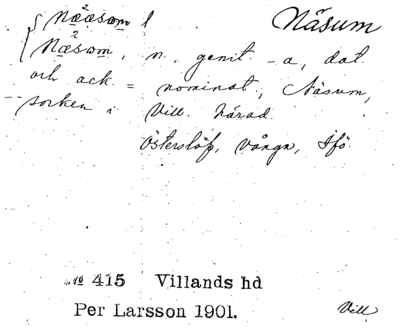 Näsum
Næ²æsom l
Næ²som, n, genit -a, dat
och ack = nominat, Näsum,
socken i Vill. härad.
Österslöf, vånga, Ifö
№ 415 Villands hd
Per Larsson 1901.
Vill